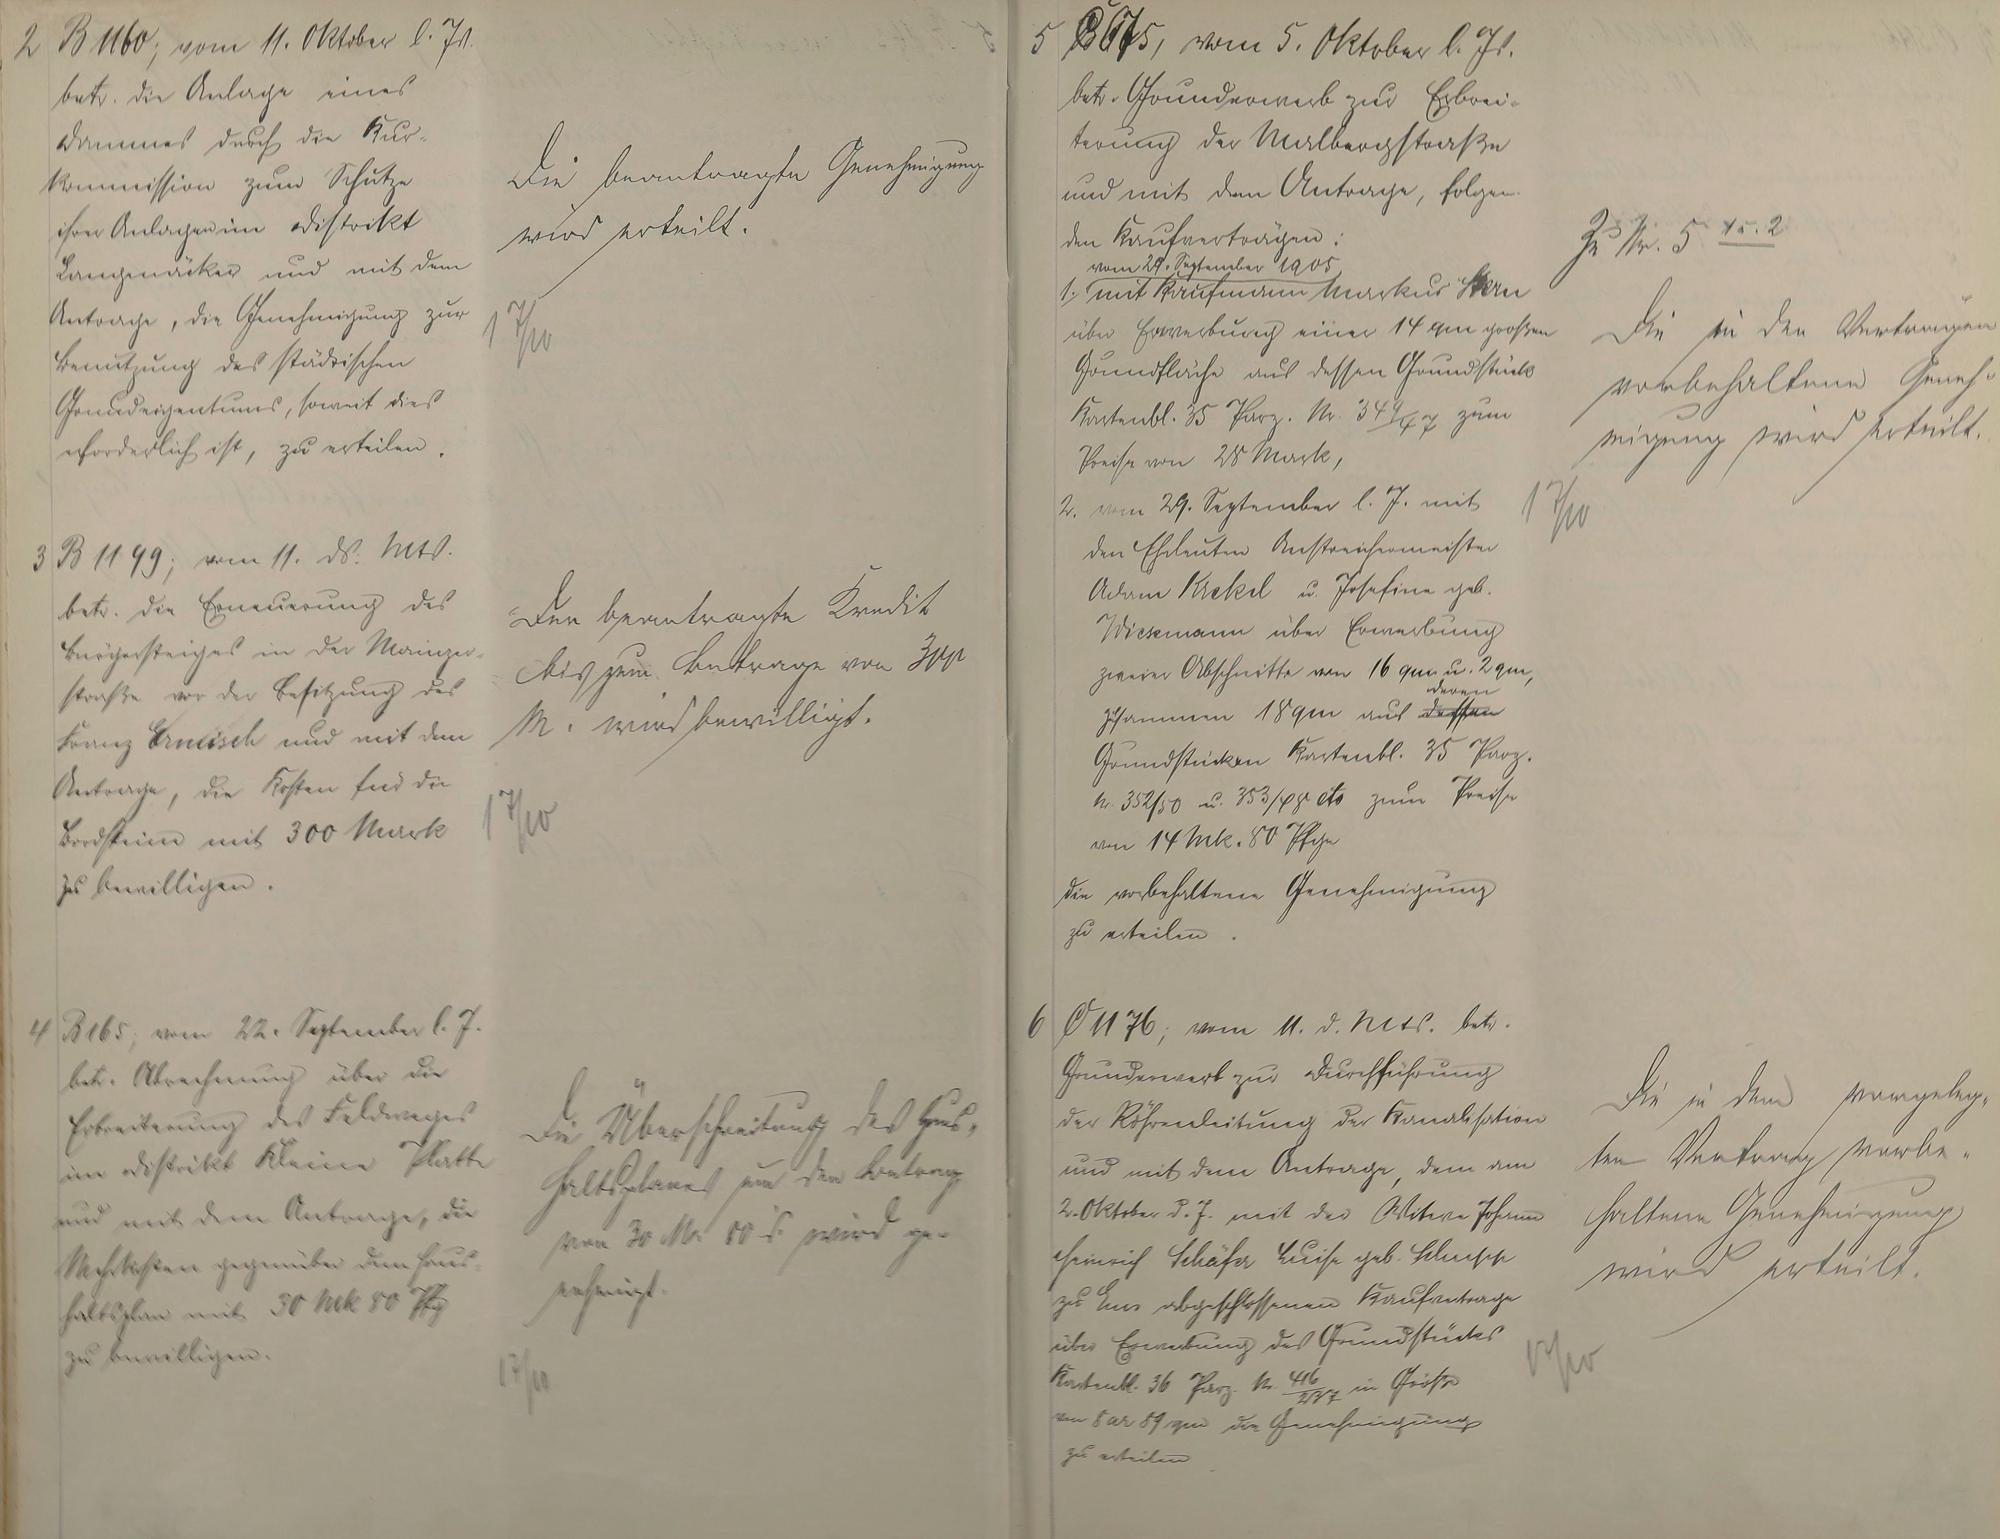 2 B 1160; vom 11. Oktober l. Js.
betr. die Anlage eines
Dammes durch die Kur-
kommission zum Schutze
ihrer Anlagen im Distrikt
Langenäcker und mit dem
Antrage, die Genehmigung zur
Benutzung des städtischen
Grundeigentums, soweit dies
erforderlich ist, zu erteilen.
Die beantragte Genehmigung
wird erteilt.
17/10
3 B 1199; vom 11. ds. Mts.
betr. die Erneuerung des
Bürgersteiges in der Mainzer-
straße vor der Besitzung des
Franz und mit dem
Antrage, die Kosten für die
Bordsteine mit 300 Mark
zu bewilligen.
Der beantragte Kredit
bis zum Betrage von 300
M. wird bewilligt.
17/10
4 B 165; vom 22. September l. J.
betr. Abrechnung über die
Erbreiterung des Feldweges
im Distrikt Kleine Platte
und mit dem Antrage, die
Mehrkosten gegenüber dem Haus-
haltsplan mit 30 Mk 80 Pfg
zu bewilligen.
Die Überschreitung des Haus-
haltsplanes um den Betrag
von 30 M. 80 wird ge-
nehmigt.
17/10
5 B 675, vom 5. Oktober l. Js.
betr. Grunderwerb zur Erbrei-
terung der Malbergstraße
und mit dem Antrage, folgen-
den Kaufverträgen:
vom 29. September 1905
1. mit Kaufmann Markus
über Erwerbung einer 14 qm großen
Grundfläche aus dessen Grundstück
Kartenbl. 35 Parz. Nr. 349/47 zum
Preise von 28 Mark,
2. vom 29. September l. J. mit
den Eheleuten Anstreichermeister
Adam Krekel u. Josefine geb.
Wiesemann über Erwerbung
zweier Abschnitte von 16 qm u. 2 qm,
deren
zusammen 18 qm aus dessen
Grundstücken Kartenbl. 35 Parz.
Nr. 352/50 u. 353/48 etc zum Preise
von 14 Mk. 80 Pfge
die vorbehaltene Genehmigung
zu erteilen.
Zu Nr. 5 1 u. 2
Die in den Verträgen
vorbehaltene Geneh-
migung wird erteilt.
17/10
6 C 1176; vom 11. d. Mts. betr.
Grunderwerb zur Durchführung
der Röhrenleitung der Kanalisation
und mit dem Antrage, dem am
2. Oktober d. J. mit der Witwe Johann
Heinrich Schäfer Luise geb.
zu Ems abgeschlossenen Kaufvertrage
über Erwerbung des Grundstücks
Kartenbl. 36 Parz. Nr. 416/237 in Größe
von 8 ar 89 qm die Genehmigung
zu erteilen
Die in dem vorgeleg-
ten Vertrag vorbe-
haltene Genehmigung
wird erteilt.
17/10